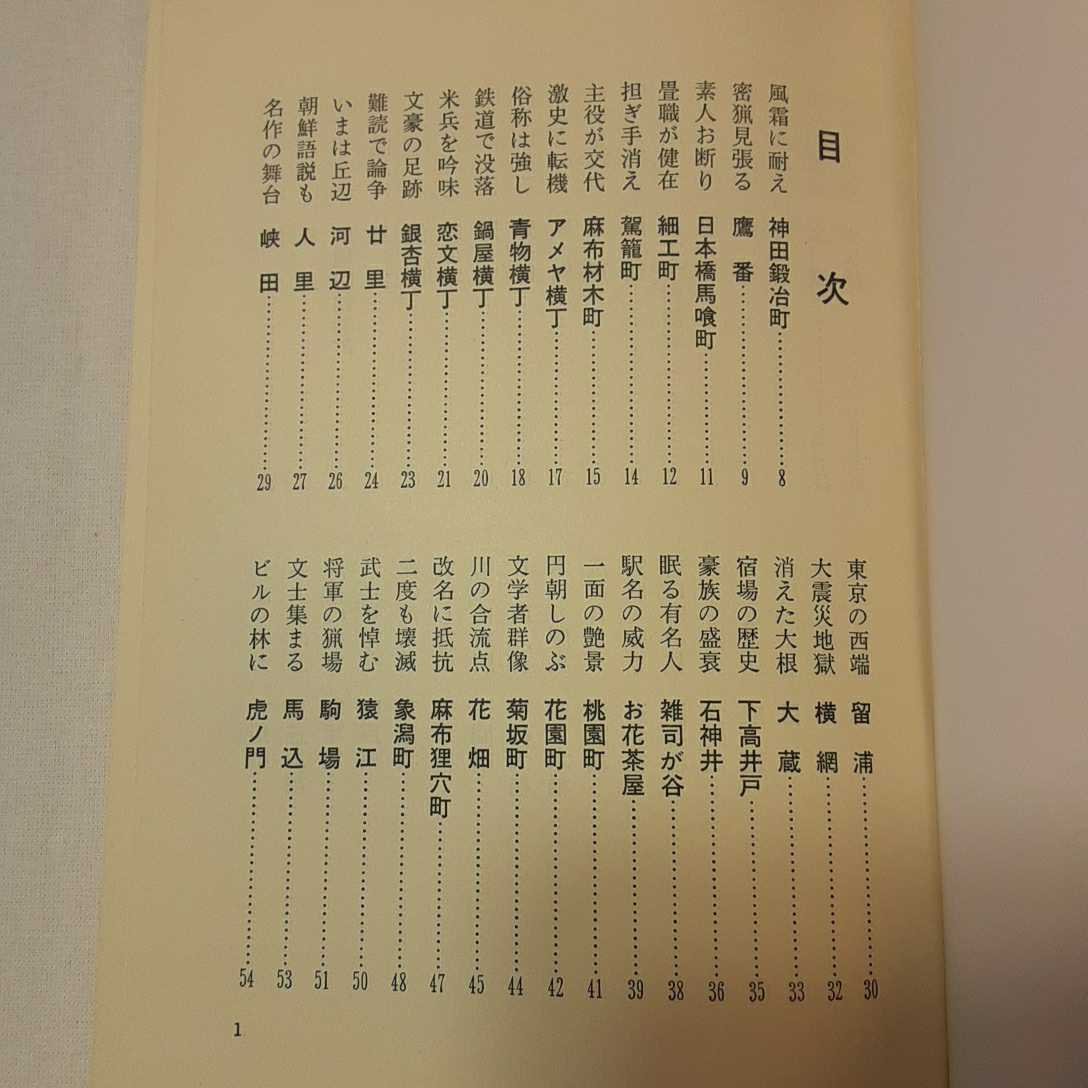 目次
風霜に耐え 神田鍛冶町 8
密猟見張る 鷹番 9
素人お断り 日本橋馬喰町 11
畳職が健在 細工町 12
担ぎ手消え 駕籠町 14
主役が交代 麻布材木町 15
激史に転機 アメヤ横丁 17
俗称は強し 青物横丁 18
鉄道で没落 鍋屋横丁 20
米兵を吟味 恋文横丁 21
文豪の足跡 銀杏横丁 23
難読で論争 廿里 24
いまは丘辺 河辺 26
朝鮮語説も 人里 27
名作の舞台 峡田 29
東京の西端 留浦 30
大震災地獄 横網 32
消えた大根 大蔵 33
宿場の歴史 下高井戸 35
豪族の盛衰 石神井 36
眠る有名人 雑司が谷 38
駅名の威力 お花茶屋 39
一面の艶景 桃園町 41
円朝しのぶ 花園町 42
文学者群像 菊坂町 44
川の合流点 花畑 45
改名に抵抗 麻布狸穴町 47
二度も壊滅 象潟町 48
武士を悼む 猿江 50
将軍の猟場 駒場 51
文士集まる 馬込 53
ビルの林に 虎ノ門 54
1